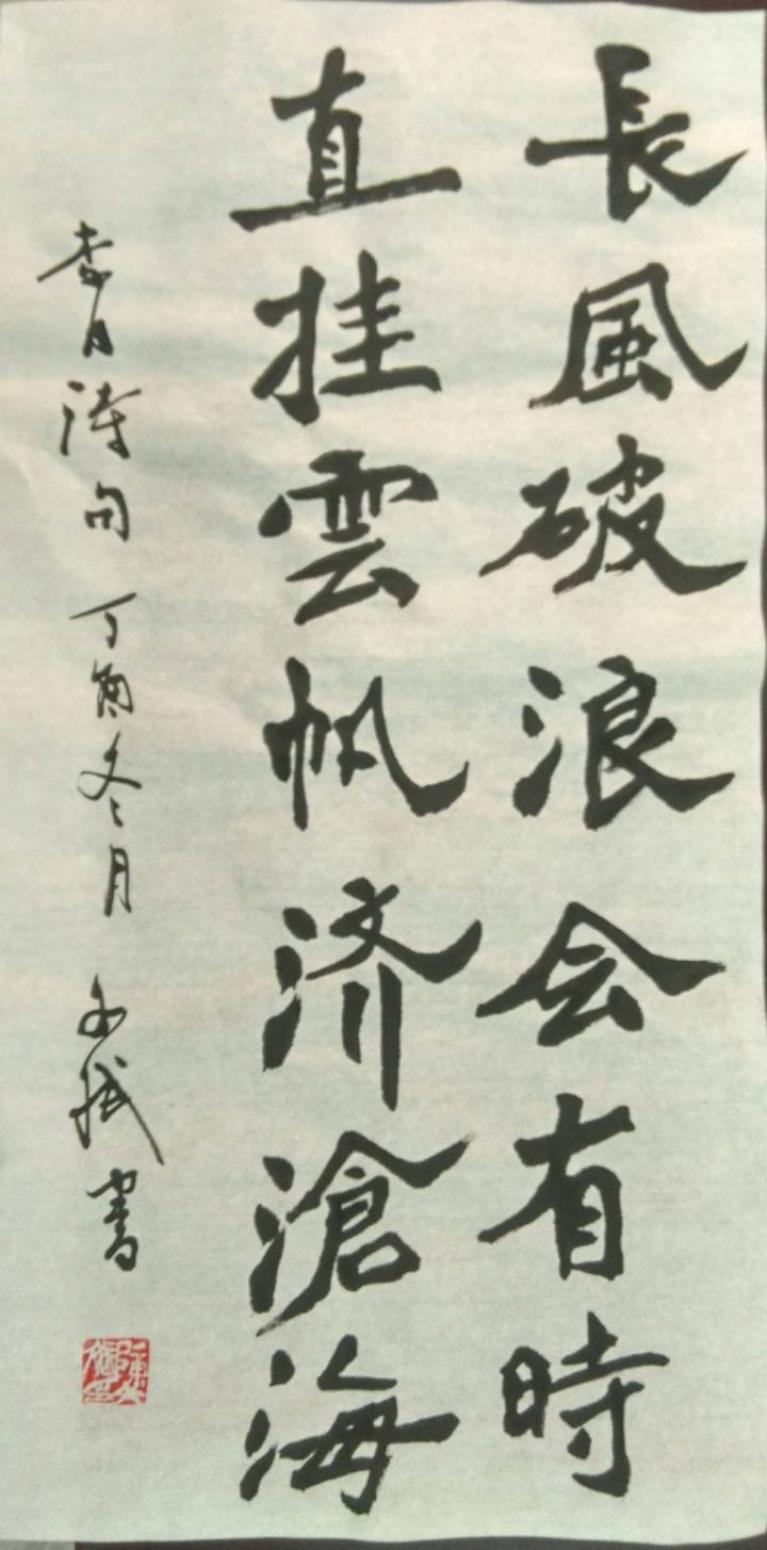 長風破浪会有時
直挂雲帆济滄海
李白诗句 丁酉冬月 書